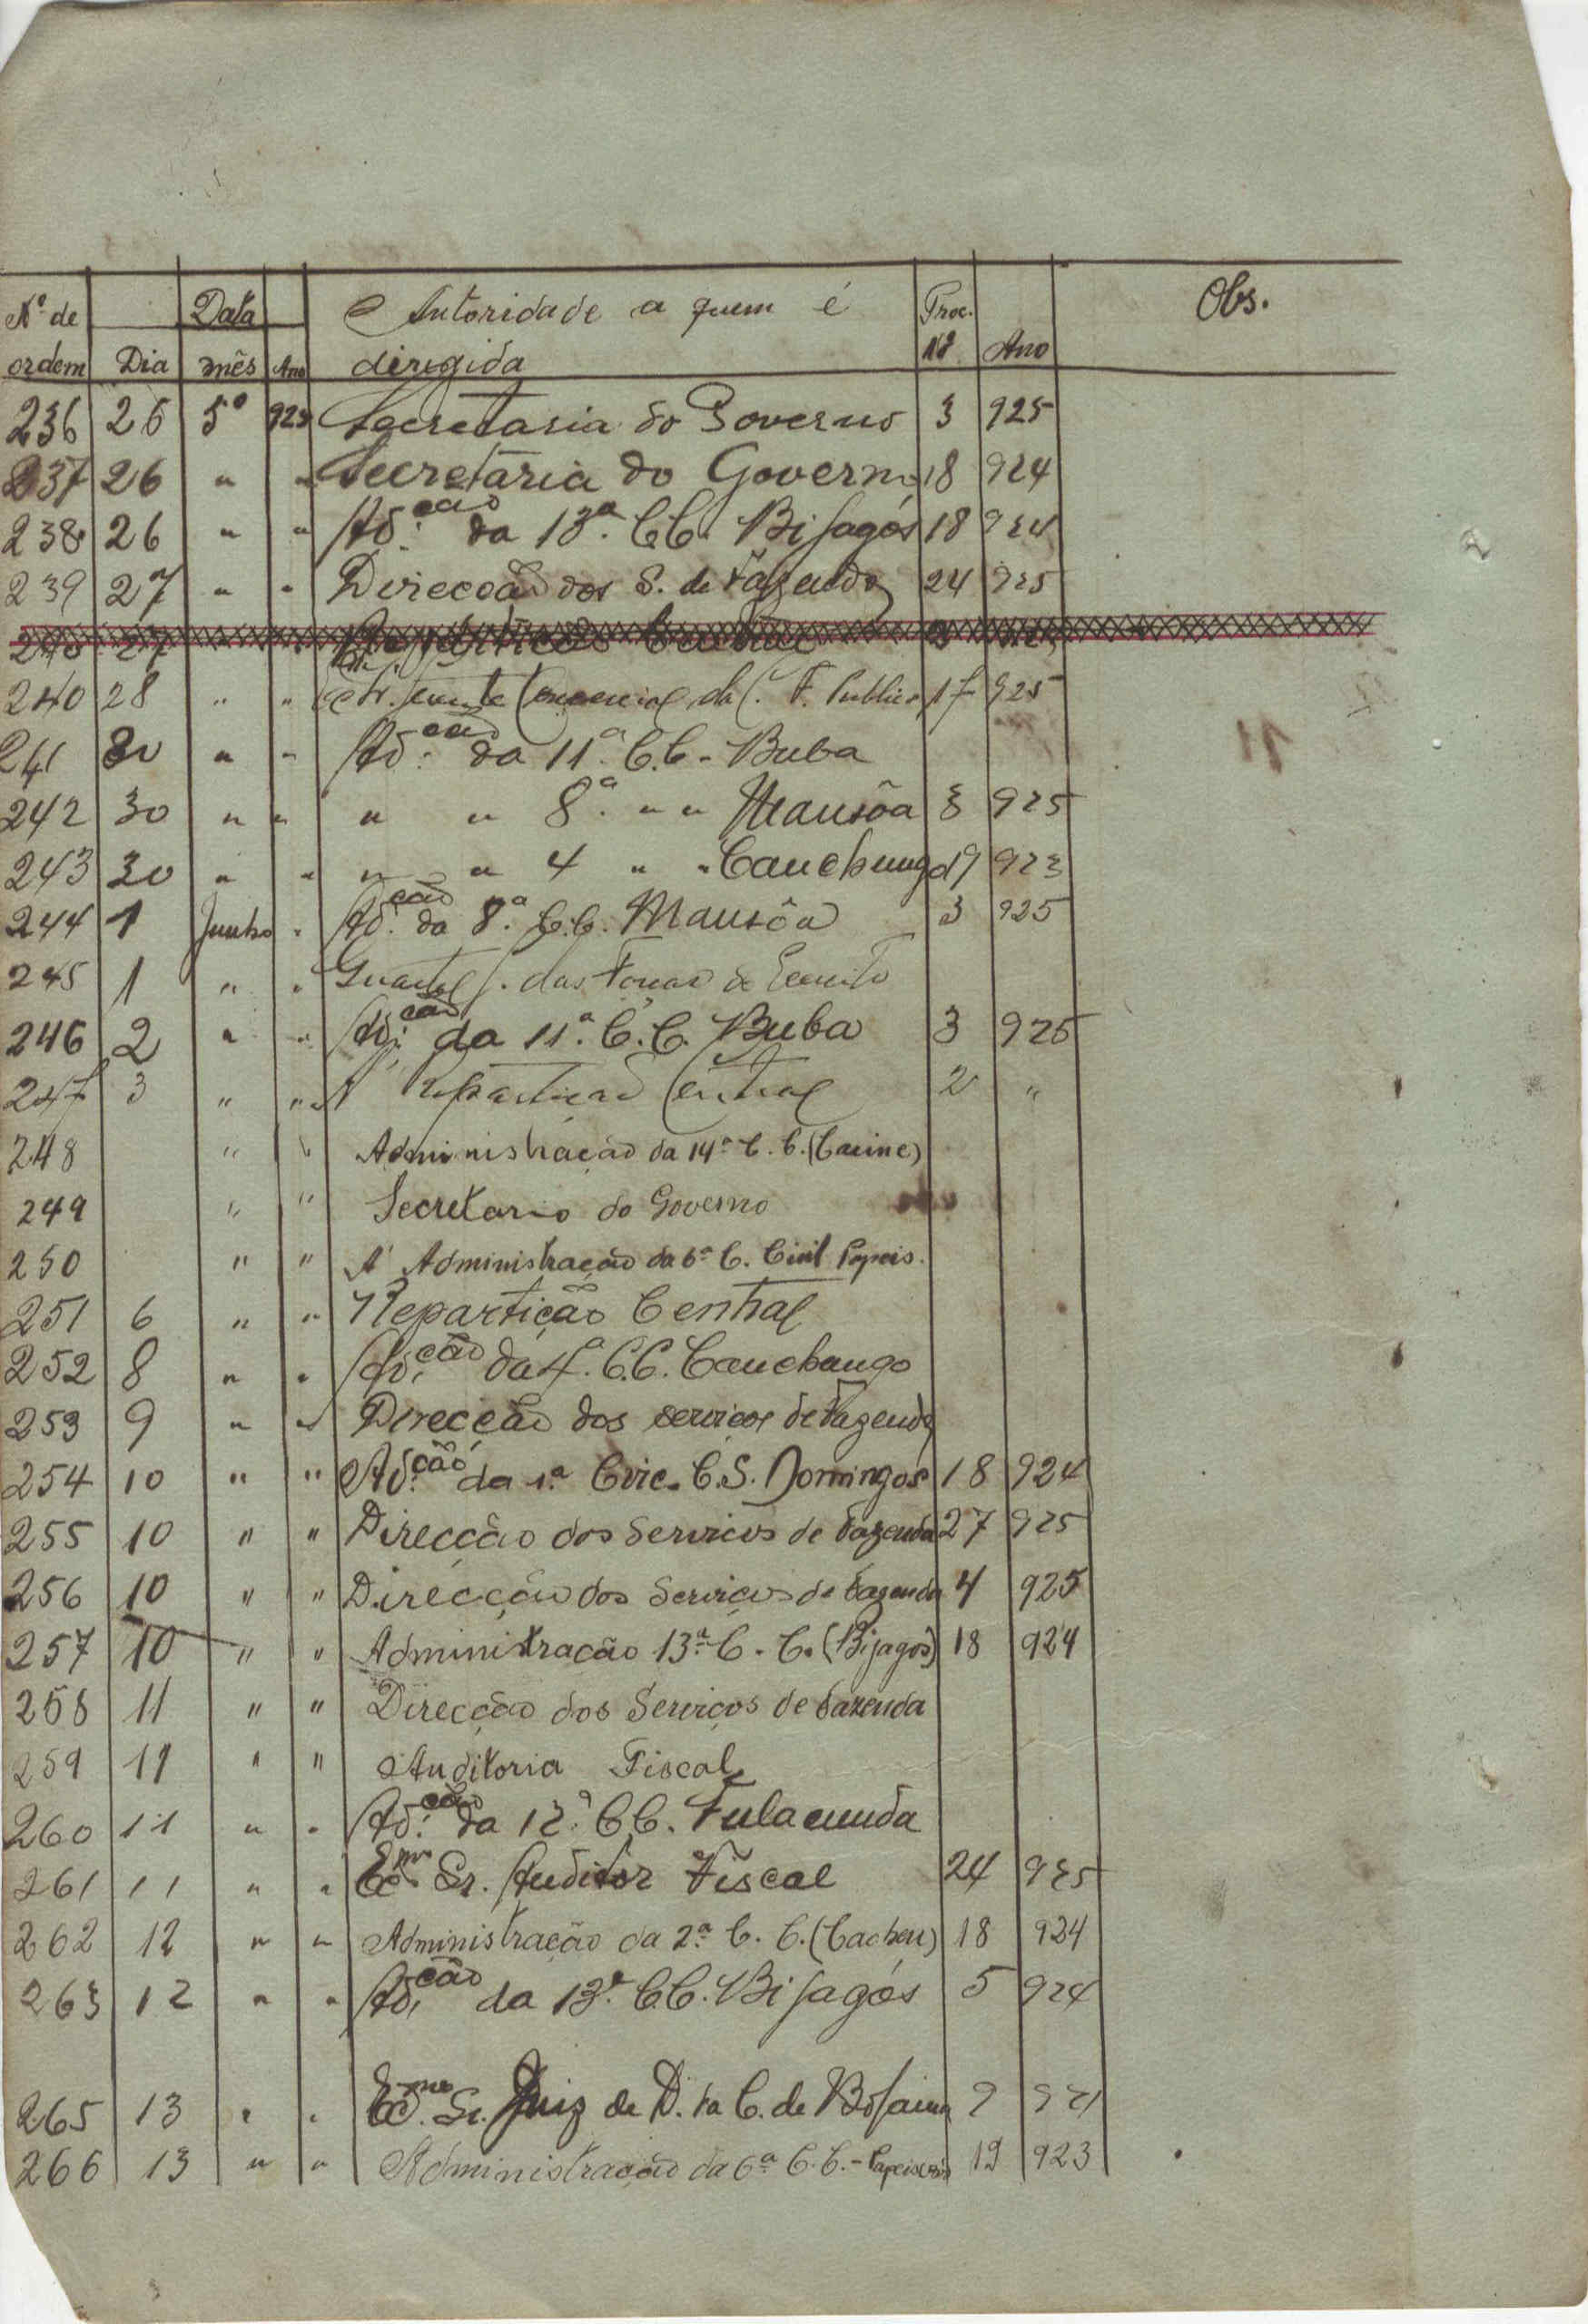 Nº de ordem Data Dia mês Ano Autoridade a quem é dirigida Proc. Nº Ano Obs.
236 26 5º 925 Secretaria do Governo 3 925
237 26 " " Secretaria do Governo 18 924
238 26 " " Adm.ção da 13ª C.C. Bijagós 18 924
239 27 " " Direcção dos S. de Fazenda 24 925
240 27 " Repartição Central
240 28 " " da C. F. Publica 17 925
241 30 " " Ad.ção da 11ª C.C. - Buba
242 30 " " " " 8ª " " Mansôa 3 925
243 30 " " " " 4 " " Canchungo 19 923
244 1 Junho " Ad.ção da 8ª C.C. Mansôa 3 925
245 1 " " Quartel G. das Forças do Exercito
246 2 " " Ad.ção da 11ª C.C. Buba 3 925
247 3 " " A' Repartição Central 2 "
248 " " Administração da 14ª C. C. (Cacine)
249 " " Secretario do Governo
250 " " A' Administração da 6ª C. Civil Papeis.
251 6 " " Repartição Central
252 8 " " Ad.ção da 4ª C.C. Canchungo
253 9 " " Direcção dos serviços de Fazenda
254 10 " " Ad.ção da 1ª Circ. C. S. Domingos 18 924
255 10 " " Direcção dos Serviços de Fazenda 27 925
256 10 " " Direcção dos Serviços de Fazenda 4 925
257 10 " " Administração 13ª C. C. (Bijagós) 18 924
258 11 " " Direcção dos Serviços de Fazenda
259 11 " " Auditoria Fiscal
260 11 " " Ad.ção da 12ª C.C. Fulacunda
261 11 " " Exmº Sr. Auditor Fiscal 24 925
262 12 " " Administração da 2ª C. C. (Cacheu) 18 924
263 12 " " Ad.ção da 13ª C.C. Bijagós 5 924
265 13 " " Exmº Sr. Juiz de D. da C. de Bolama 9
266 13 " " Administração da 6ª C. C. - 19 923